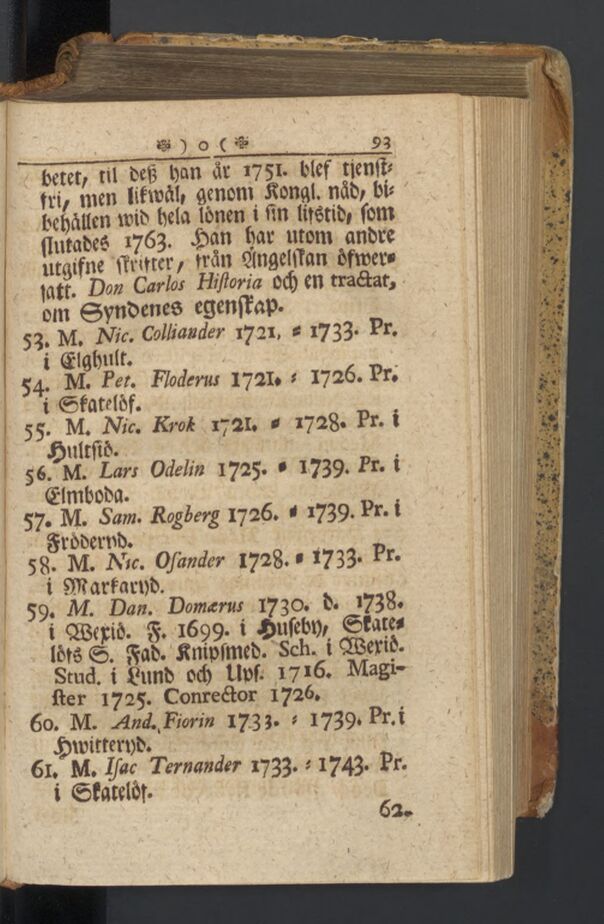 ❉ ) o ( ❉ 93
betet, til deß han år 1751. blef tjenst⸗
fri, men likwäl, genom Kongl. nåd, bi⸗
behållen wid hela lönen i sin lifstid, som
slutades 1763. Han har utom andre
utgifne skrifter, från Ängelskan öfwer⸗
satt. Don Carlos Historia och en tractat,
om Syndenes egenskap.
53. M. Nic. Colliander 1721. ⸗ 1733. Pr.
i Elghult.
54. M. Pet. Floderus 1721. ⸗ 1726. Pr.
i Skatelöf.
55. M. Nic. Krok 1721. ⸗ 1728. Pr. i
Hultsiö.
56. M. Lars Odelin 1725. ⸗ 1739. Pr. i
Elmboda.
57. M. Sam. Rogberg 1726. ⸗ 1739. Pr. i
Fröderyd.
58. M. Nic. Osander 1728. ⸗ 1733. Pr.
i Markaryd.
59. M. Dan. Domærus 1730. d. 1738.
i Wexiö. F. 1699. i Huseby, Skate⸗
löfs S. Fad. Knipsmed. Sch. i Wexiö.
Stud. i Lund och Ups. 1716. Magi-
ster 1725. Conrector 1726.
60. M. And. Fiorin 1733. ⸗ 1739. Pr. i
Hwitteryd.
61. M. Isac Ternander 1733. ⸗ 1743. Pr.
i Skatelöf.
62.